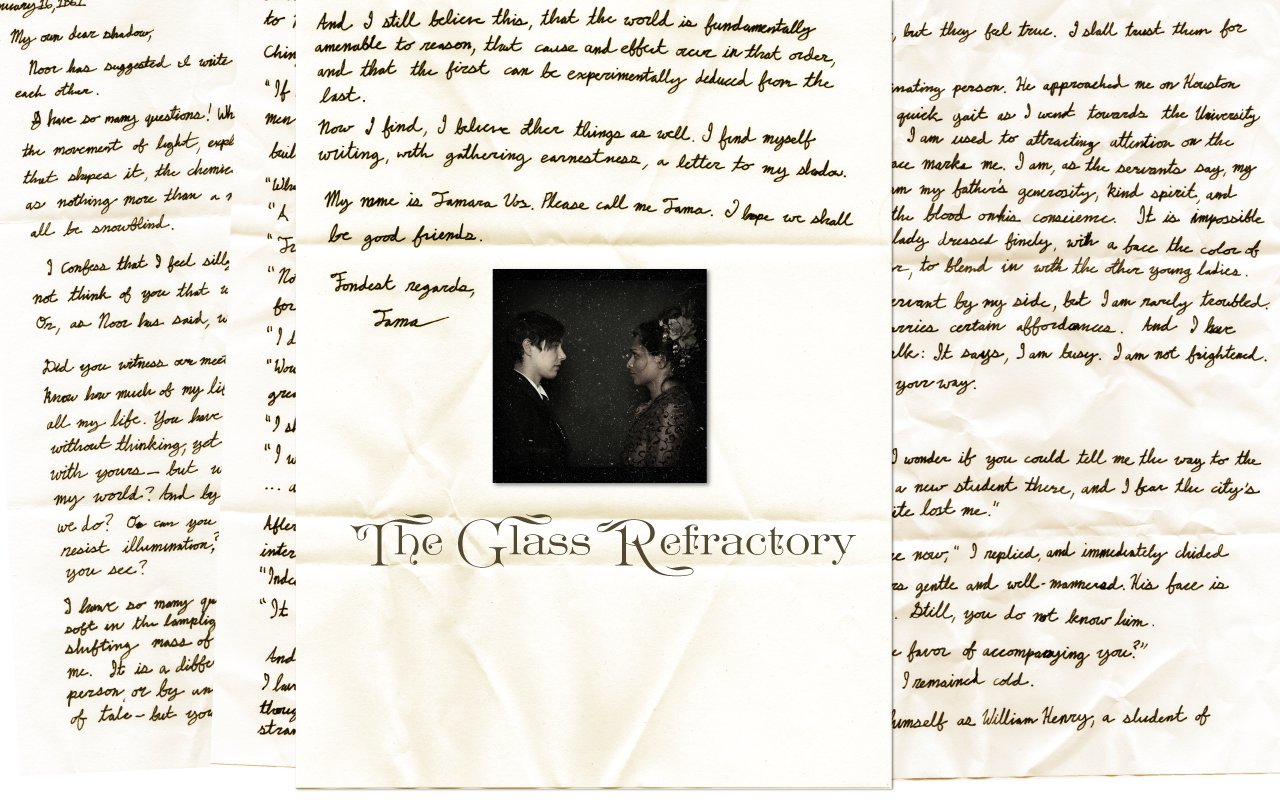 nuary 16, 1861
My own dear shadow,
Noor has suggested I write
each other.
I have so many questions! Wh
the movement of light, expl
that shapes it, the chemic
as nothing more than a n
all be snowblind.
I confess that I feel silly
not think of you that w
Or, as Noor has said, w
Did you witness our meet
know how much of my li
all my life. You have
without thinking, yet
with yours — but w
my world? And by
we do? Or can you
resist illumination,
you see?
I have so many qu
soft in the lamplig
shifting mass of
me. It is a diffe
person, or by an
of tale — but you
to
Chin
"If
men
buil
"Wha
"A
"Tr
"No
for
"I d
"Wou
grea
"I sh
"I w
... a
After
inter
"Inde
"It
And
I hav
thoug
stran
And I still believe this, that the world is fundamentally
amenable to reason, that cause and effect occur in that order,
and that the first can be experimentally deduced from the
last.
Now I find, I believe other things as well. I find myself
writing, with gathering earnestness, a letter to my shadow.
My name is Tamara Vos. Please call me Tama. I hope we shall
be good friends.
Fondest regards,
Tama
The Glass Refractory
, but they feel true. I shall trust them for
nating person. He approached me on Houston
quick gait as I went towards the University
I am used to attracting attention on the
ace marks me. I am, as the servants say, my
am my father's generosity, kind spirit, and
the blood on his conscience. It is impossible
lady dressed finely, with a face the color of
r, to blend in with the other young ladies.
ervant by my side, but I am rarely troubled.
arries certain affordances. And I have
alk: It says, I am busy. I am not frightened.
your way.
I wonder if you could tell me the way to the
a new student there, and I fear the city's
ite lost me."
e now," I replied, and immediately chided
rs gentle and well-mannered. His face is
. Still, you do not know him.
e favor of accompanying you?"
I remained cold.
himself as William Henry, a student of